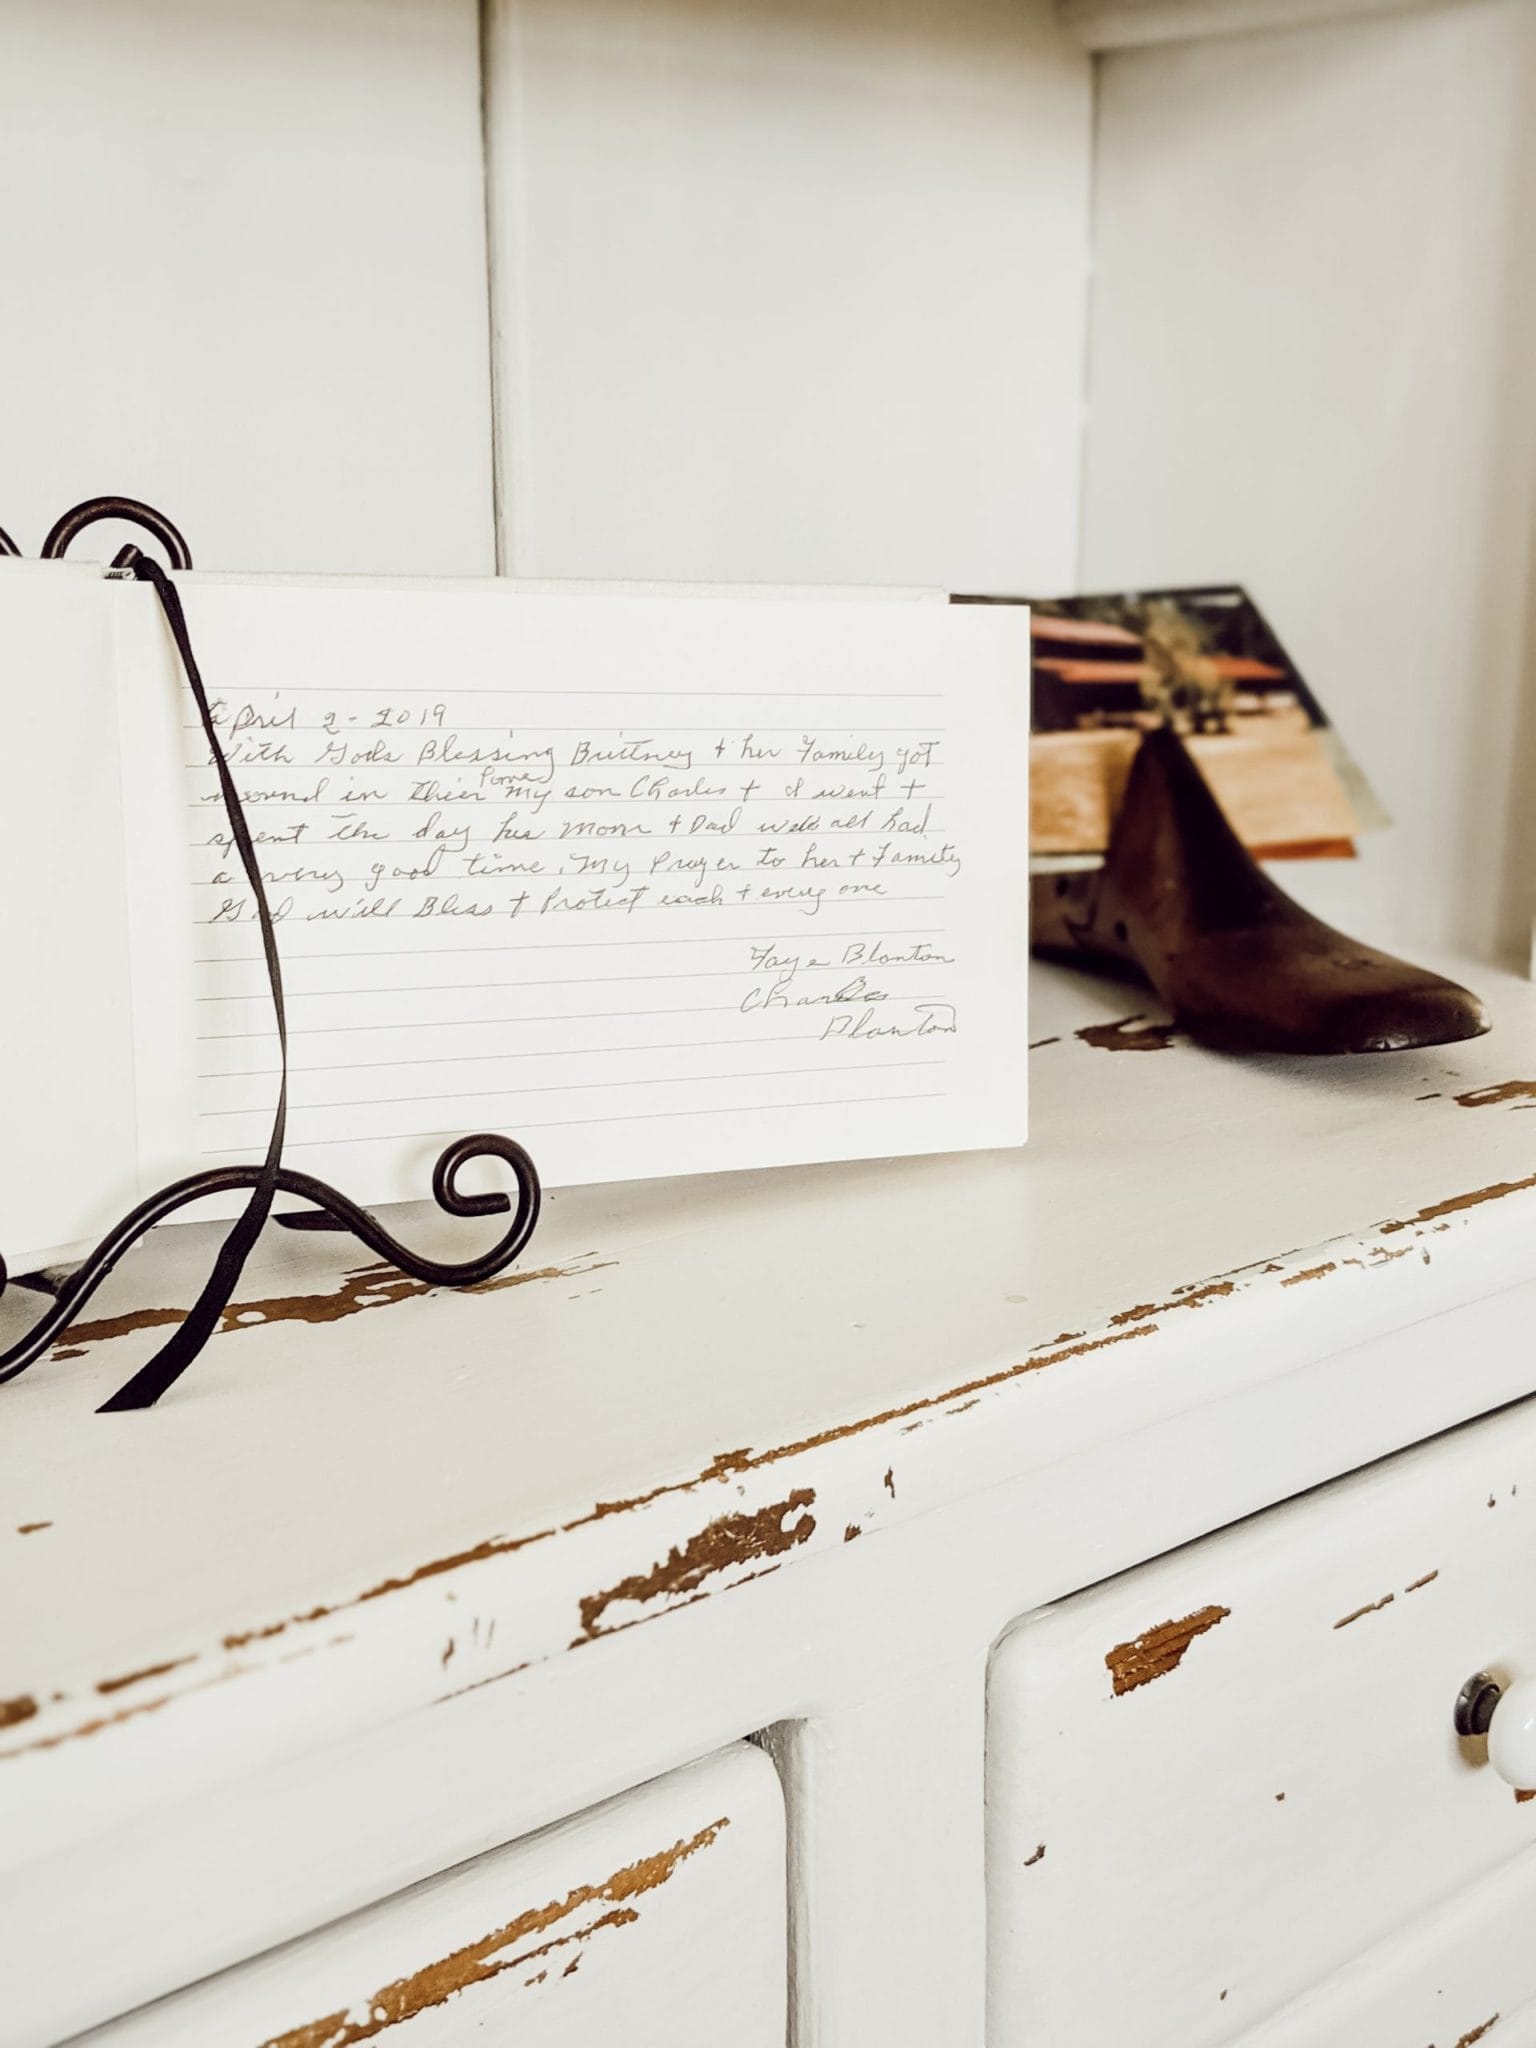 April 2-2019
With Gods Blessing Brittney + her Family got
moved in their Home My son Charles + I went +
spent the day her Mom + Dad we all had
a very good time. My Prayer to her + Family
God will Bless + Protect each + every one
Faye Blanton
Charles
Blanton